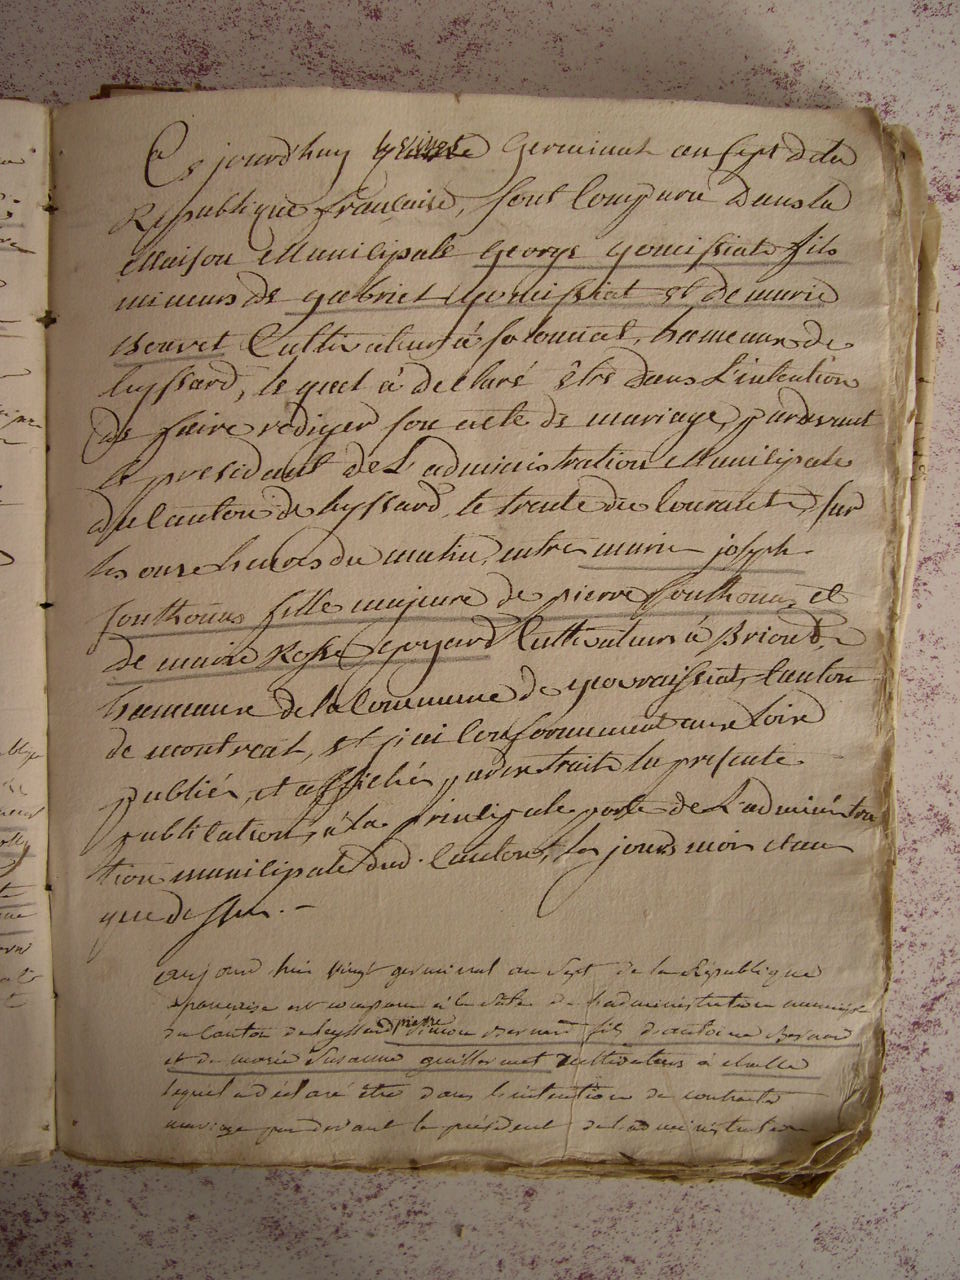 Ce jourd'huy Germinal an sept de la
Republique francaise, sont Comparu Dans la
Maison Municipale George gomissiat fils
mineurs de gabriel gomissiat et de marie
Bouvet Cultivateurs à solomiat, hameaux de
Leyssard, le quel à declaré être dans L'intention
de faire rediger son acte de mariage, pardevant
le president de L'administration Municipale
du Canton de Leyssard, le trente du Courant, sur
les onze heures du matin, entre marie joseph
southonax fille majeure de pierre southonax et
de marie Rosse goyard Cultivateurs à Briond,
hameaux de la Commune de Canton
de montreal, et j'ai Conformement aux Loix
publiée, et affichée par extrait la presente
publication, à la principale porte de L'administra
tion municipale dud. Canton, les jours mois et an
que dessus. -
aujourd'hui vingt germinal an Sept de la République
française est comparu à la salle de l'administration municip
du Canton de Leyssard pierre simon Bernard fils d'antoine Bernard
et de marie Susanne guillermet Cultivateurs à
lequel a déclaré être dans l'intention de contracter
mariage pardevant le président de l'administration